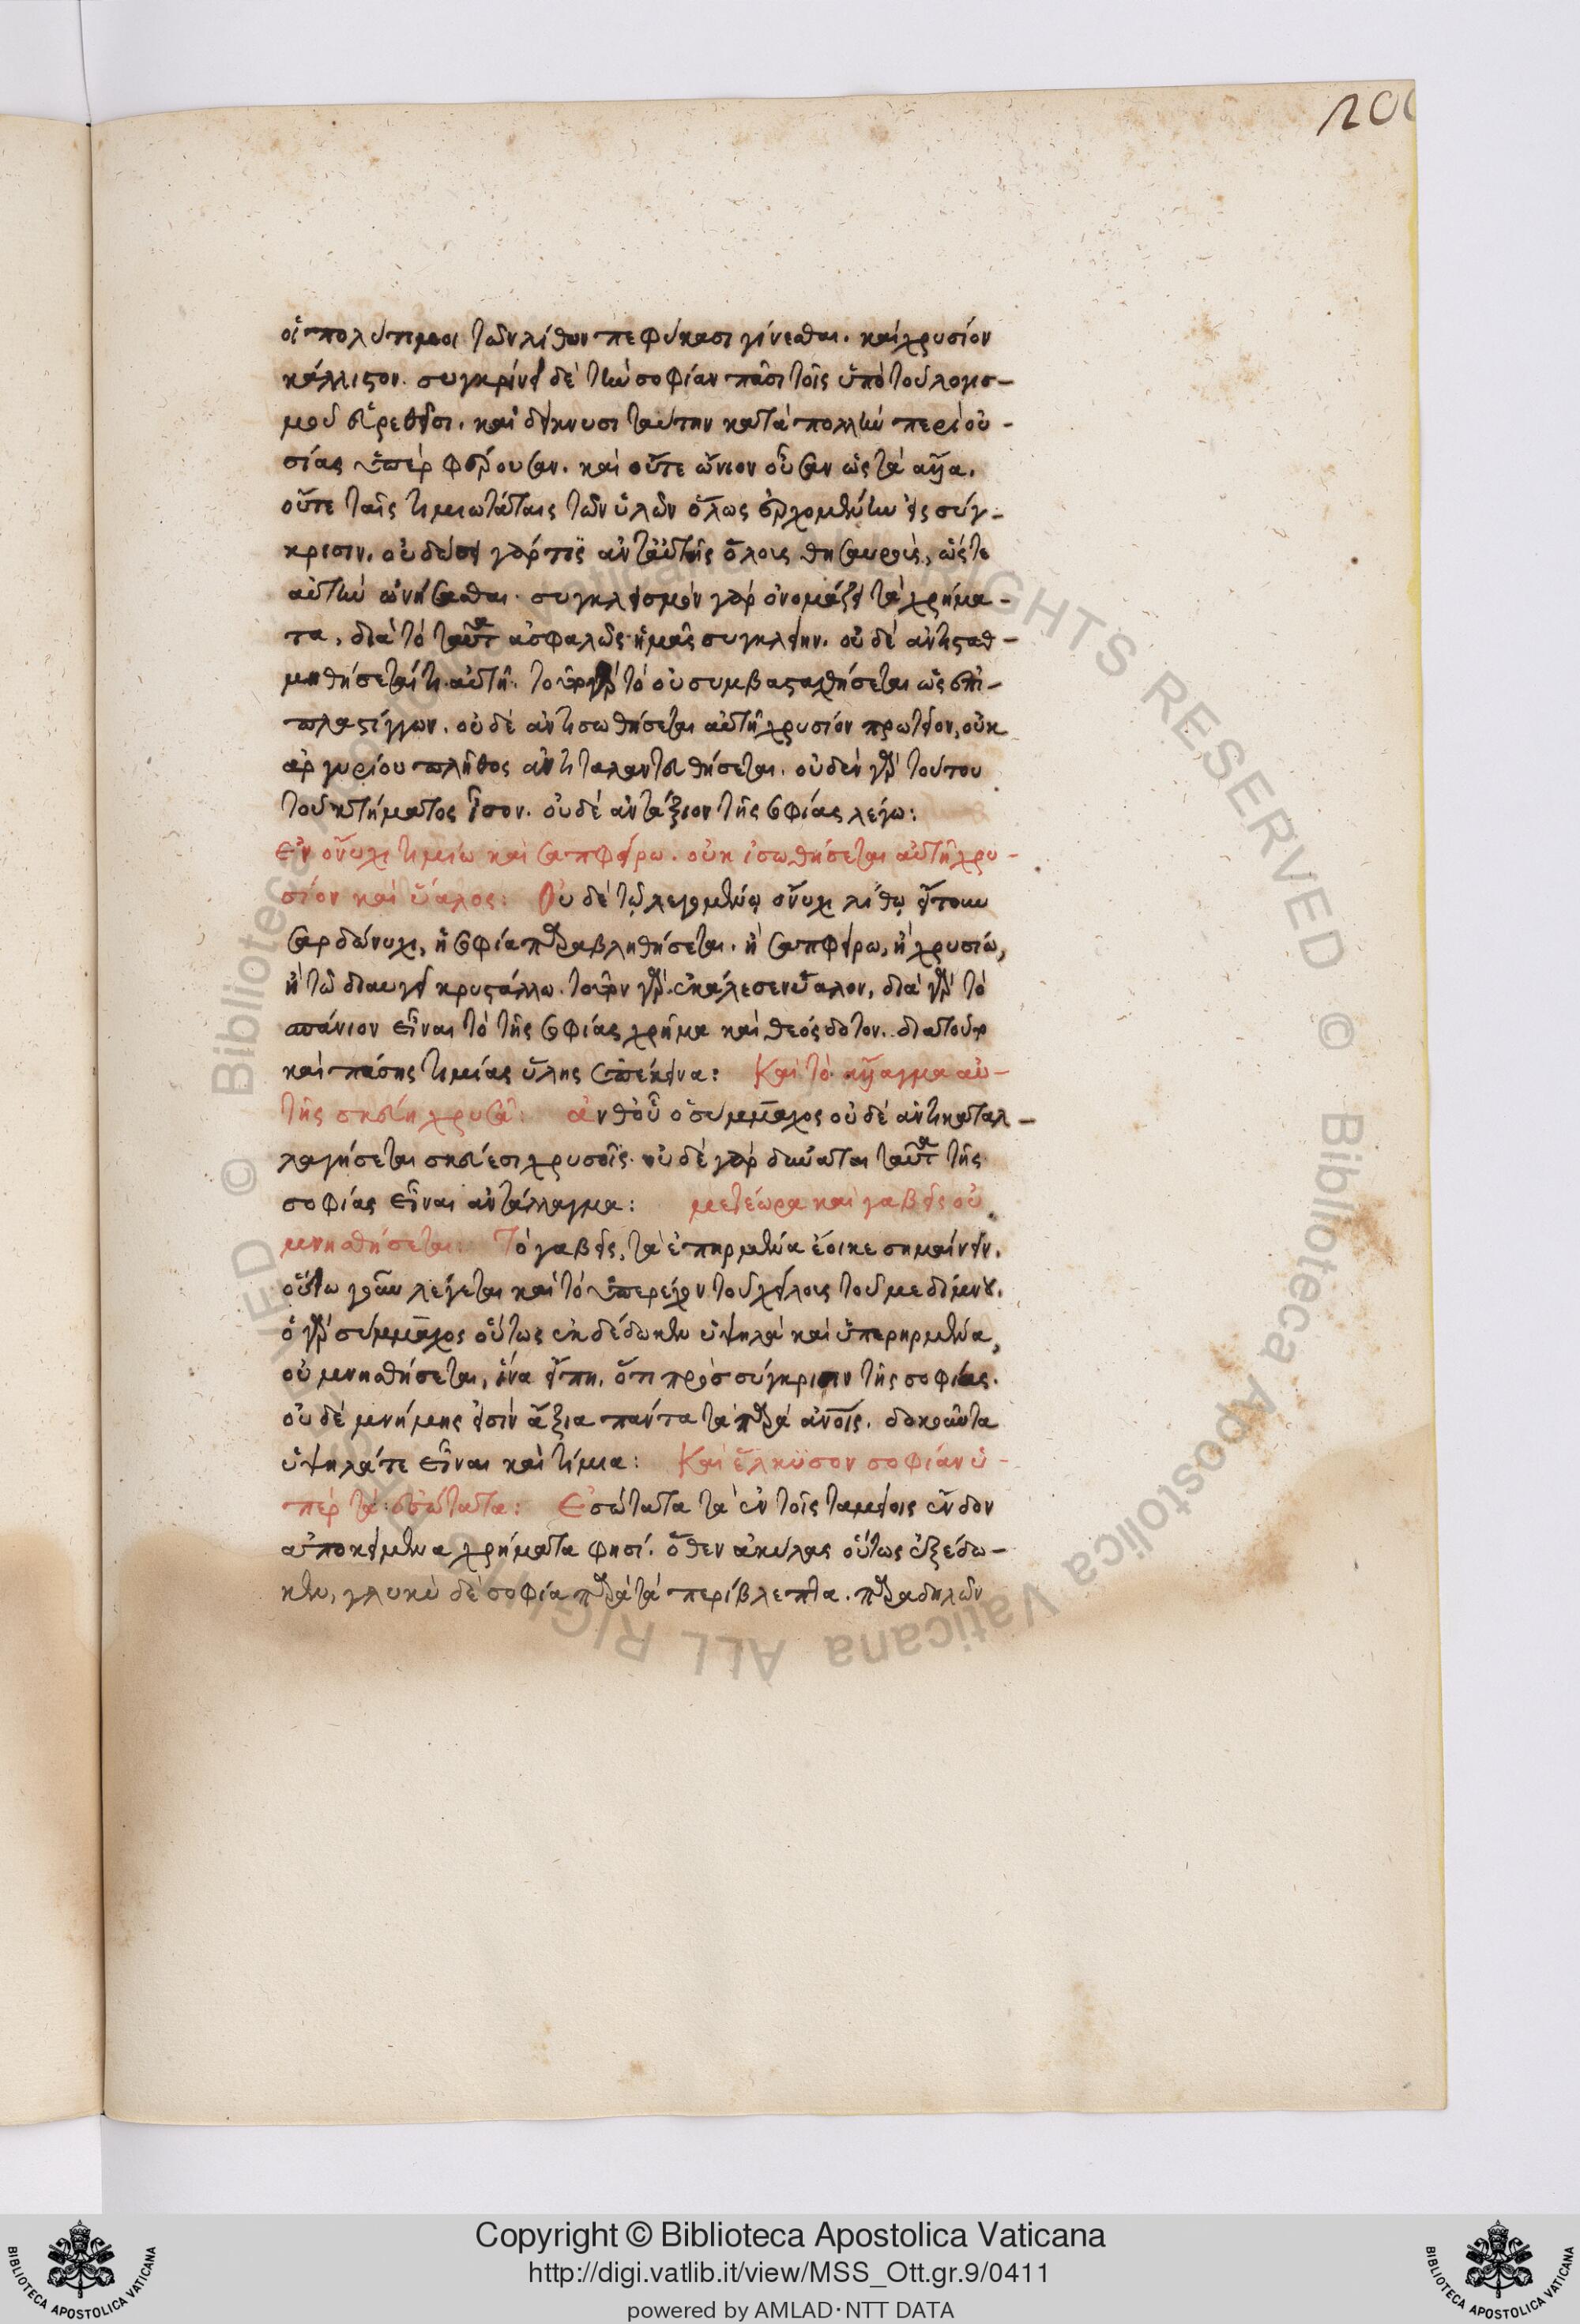 200
οἱ πολύτιμοι τῶν λίθων πεφύκασι γίνεσθαι. καὶ χρυσίον
κάλλιστον. συγκρίνει δὲ τὴν σοφίαν πᾶσι τοῖς ὑπὸ τοῦ λογισ-
μοῦ εὑρεθεῖσι. καὶ δείκνυσι ταύτην κατὰ πολλὴν περιου-
σίας ὑπερφέρουσαν. καὶ οὔτε ὤνιον οὖσαν ὡς τὰ ἄλλα.
οὔτε ταῖς τιμιωτάταις τῶν ὑλῶν ὅλως ἐρχομένην εἰς σύγ-
κρισιν. οὐ δώσει γάρ τις ἀντ' αὐτῆς ὅλους θησαυροὺς, ὥστε
αὐτὴν ὠνήσασθαι. συγκλεισμὸν γὰρ ὀνομάζει τὰ χρήμα-
τα, διὰ τὸ ταῦτα ἀσφαλῶς ἡμᾶς συγκλείειν. οὐδὲ ἀντισταθ-
μηθήσεταί τι αὐτῇ. τουτέστι τὸ οὐ συμβασταχθήσεται ὡς ἐπὶ
πλαστίγγων. οὐδὲ ἀντισωθήσεται αὐτῇ χρυσίον πρωτεῖον, οὐκ
ἀργυρίου πλῆθος ἀντιταλαντευθήσεται. οὐδὲν γὰρ τούτου
τοῦ κτήματος ἴσον. οὐδὲ ἀντάξιον τῆς σοφίας λέγω:
Ἐν ὄνυχι τιμίῳ καὶ σαπφείρῳ. οὐκ ἰσωθήσεται αὐτῇ χρυ-
σίον καὶ ὕαλος: Οὐδὲ τῷ λεγομένῳ ὄνυχι λίθῳ ἤτουν
σαρδώνυχι, ἡ σοφία παραβληθήσεται. ἢ σαπφείρω, ἢ χρυσίω,
ἢ τῶ διαυγεῖ κρυστάλλω. τοῦτον γὰρ ἐκάλεσεν ὕαλον, διὰ γὰρ τὸ
σπάνιον εἶναι τὸ τῆς σοφίας χρῆμα καὶ θεόσδοτον. διατοῦτο
καὶ πάσης τιμίας ὕλης ἐπέκεινα: Καὶ τὸ ἄλλαγμα αὐ-
τῆς σκεύη χρυσᾶ: ἀνθ οὗ ὁ σύμμαχος οὐδὲ ἀντικαταλ-
λαγήσεται σκεύεσι χρυσοῖς. οὐδὲ γὰρ δύναται ταῦτα τῆς
σοφίας εἶναι ἀντάλλαγμα: μετέωρα καὶ γαβεὶς οὐ
μνησθήσεται: Τὸ γαβεὶς, τὰ ἐπηρμένα ἔοικε σημαίνειν.
οὕτω γοῦν λέγεται καὶ τὸ ὑπερέχον τοῦ χείλους τοῦ μεδίμνου.
ὁ γὰρ σύμμαχος οὕτως ἐκδέδωκεν ὑψηλὰ καὶ ὑπερηρμένα,
οὐ μνησθήσεται, ἵνα εἴπη, ὅτι πρὸς σύγκρισιν τῆς σοφίας.
οὐδὲ μνήμης εἰσὶν ἄξια πάντα τὰ παρὰ ἀνοις. δοκοῦντα
ὑψηλά τε εἶναι καὶ τίμια: Καὶ ἕλκυσον σοφίαν ὑ-
πὲρ τὰ ἐσώτατα: Ἐσώτατα τὰ ἐν τοῖς ταμείοις ἔνδον
ἀποκείμενα χρήματα φησί. ὅθεν ἀκύλας οὕτως ἐξέδω-
κεν, γλυκὺ δὲ σοφία παρὰ τὰ περίβλεπτα. παραδηλῶν
Copyright © Biblioteca Apostolica Vaticana
http://digi.vatlib.it/view/MSS_Ott.gr.9/0411
powered by AMLAD·NTT DATA